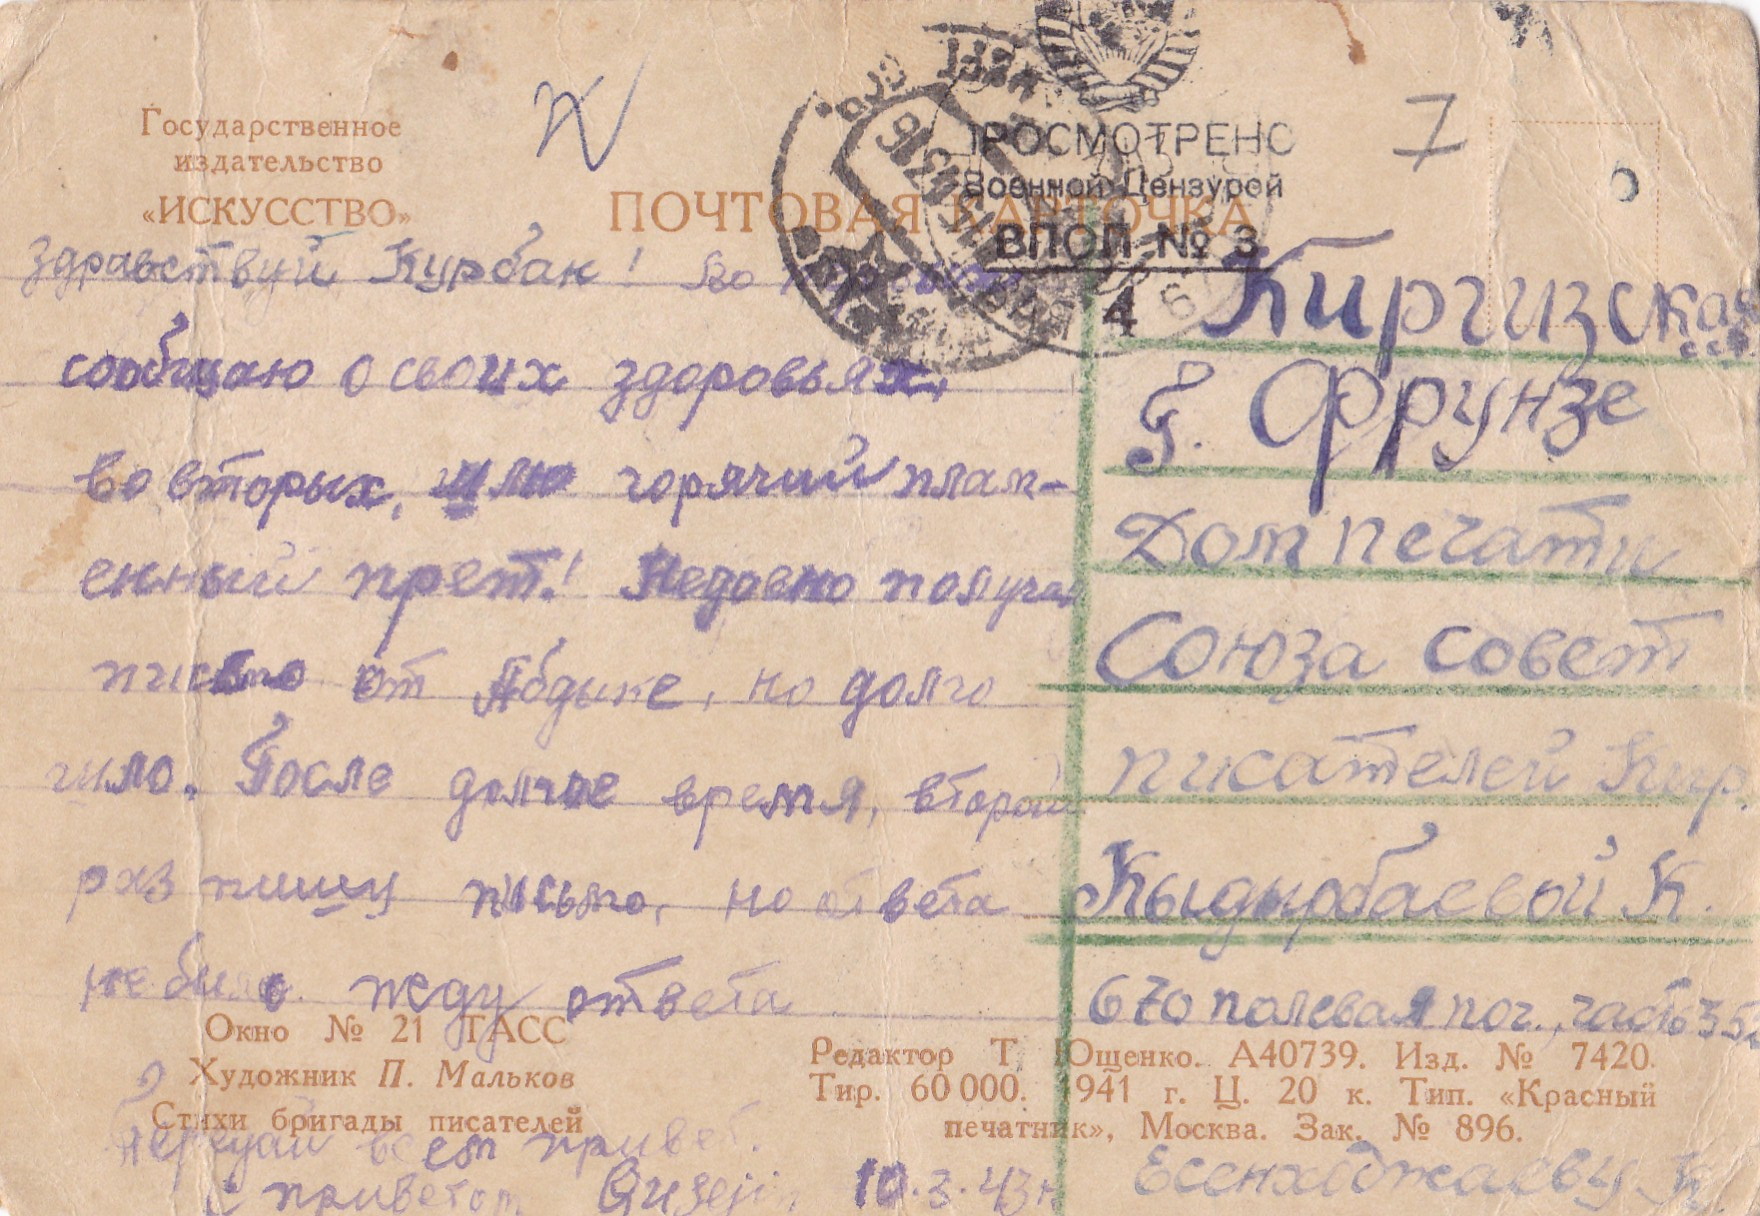 Государственное
издательство
«ИСКУССТВО»
ПОЧТОВАЯ КАРТОЧКА
ПРОСМОТРЕНО
Военной Цензурой
ВПОП № 3
4
7
Здравствуй Курбан! Во первых
сообщаю о своих здоровьях,
во вторых, шлю горячий плам-
енный превет! Недавно получал
письмо от Абдыке, но долго
После долгое время, второй
раз пишу письмо, но ответа
не было жду ответа
Передай всем привет.
с приветом 10.3.43 г
Киргизская
ССР
г. Фрунзе
Дом печати
Союза совет
писателей Кир.
Кыдырбаевой К.
670 полевая поч., часть 35
Есенходжаеву
Окно № 21 ТАСС
Художник П. Мальков
Стихи бригады писателей
Редактор Т. Ющенко. А40739. Изд. № 7420.
Тир. 60 000. 1941 г. Ц. 20 к. Тип. «Красный
печатник», Москва. Зак. № 896.